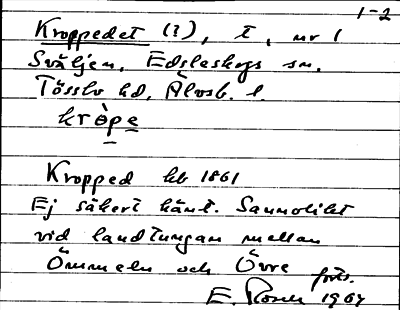 1-2
Kroppedet (?), t, nr 1
Sväljen, Edsleskogs sn,
Tössbo hd, Älvsb. l.
kròpe
Kropped hb 1861
Ej säkert känt. Sannolikt
vid landtungan mellan
Ömmeln och Övre
forts.
E. Rosell 1967